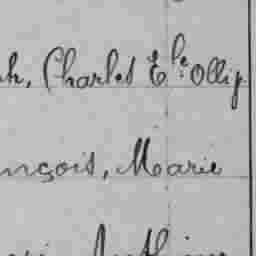 h, Charles Ele Ollip
nçois, Marie